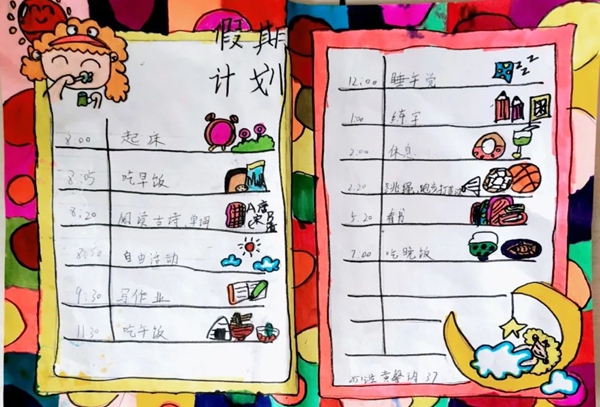 假期
计划
8:00 起床
8:05 吃早饭
8:20 阅读古诗,单词
8:50 自由活动
9:30 写作业
11:30 吃午饭
12:00 睡午觉
1:00 练字
2:00 休息
2:20 跳绳,跑步打
5:20 看书
7:00 吃晚饭
37